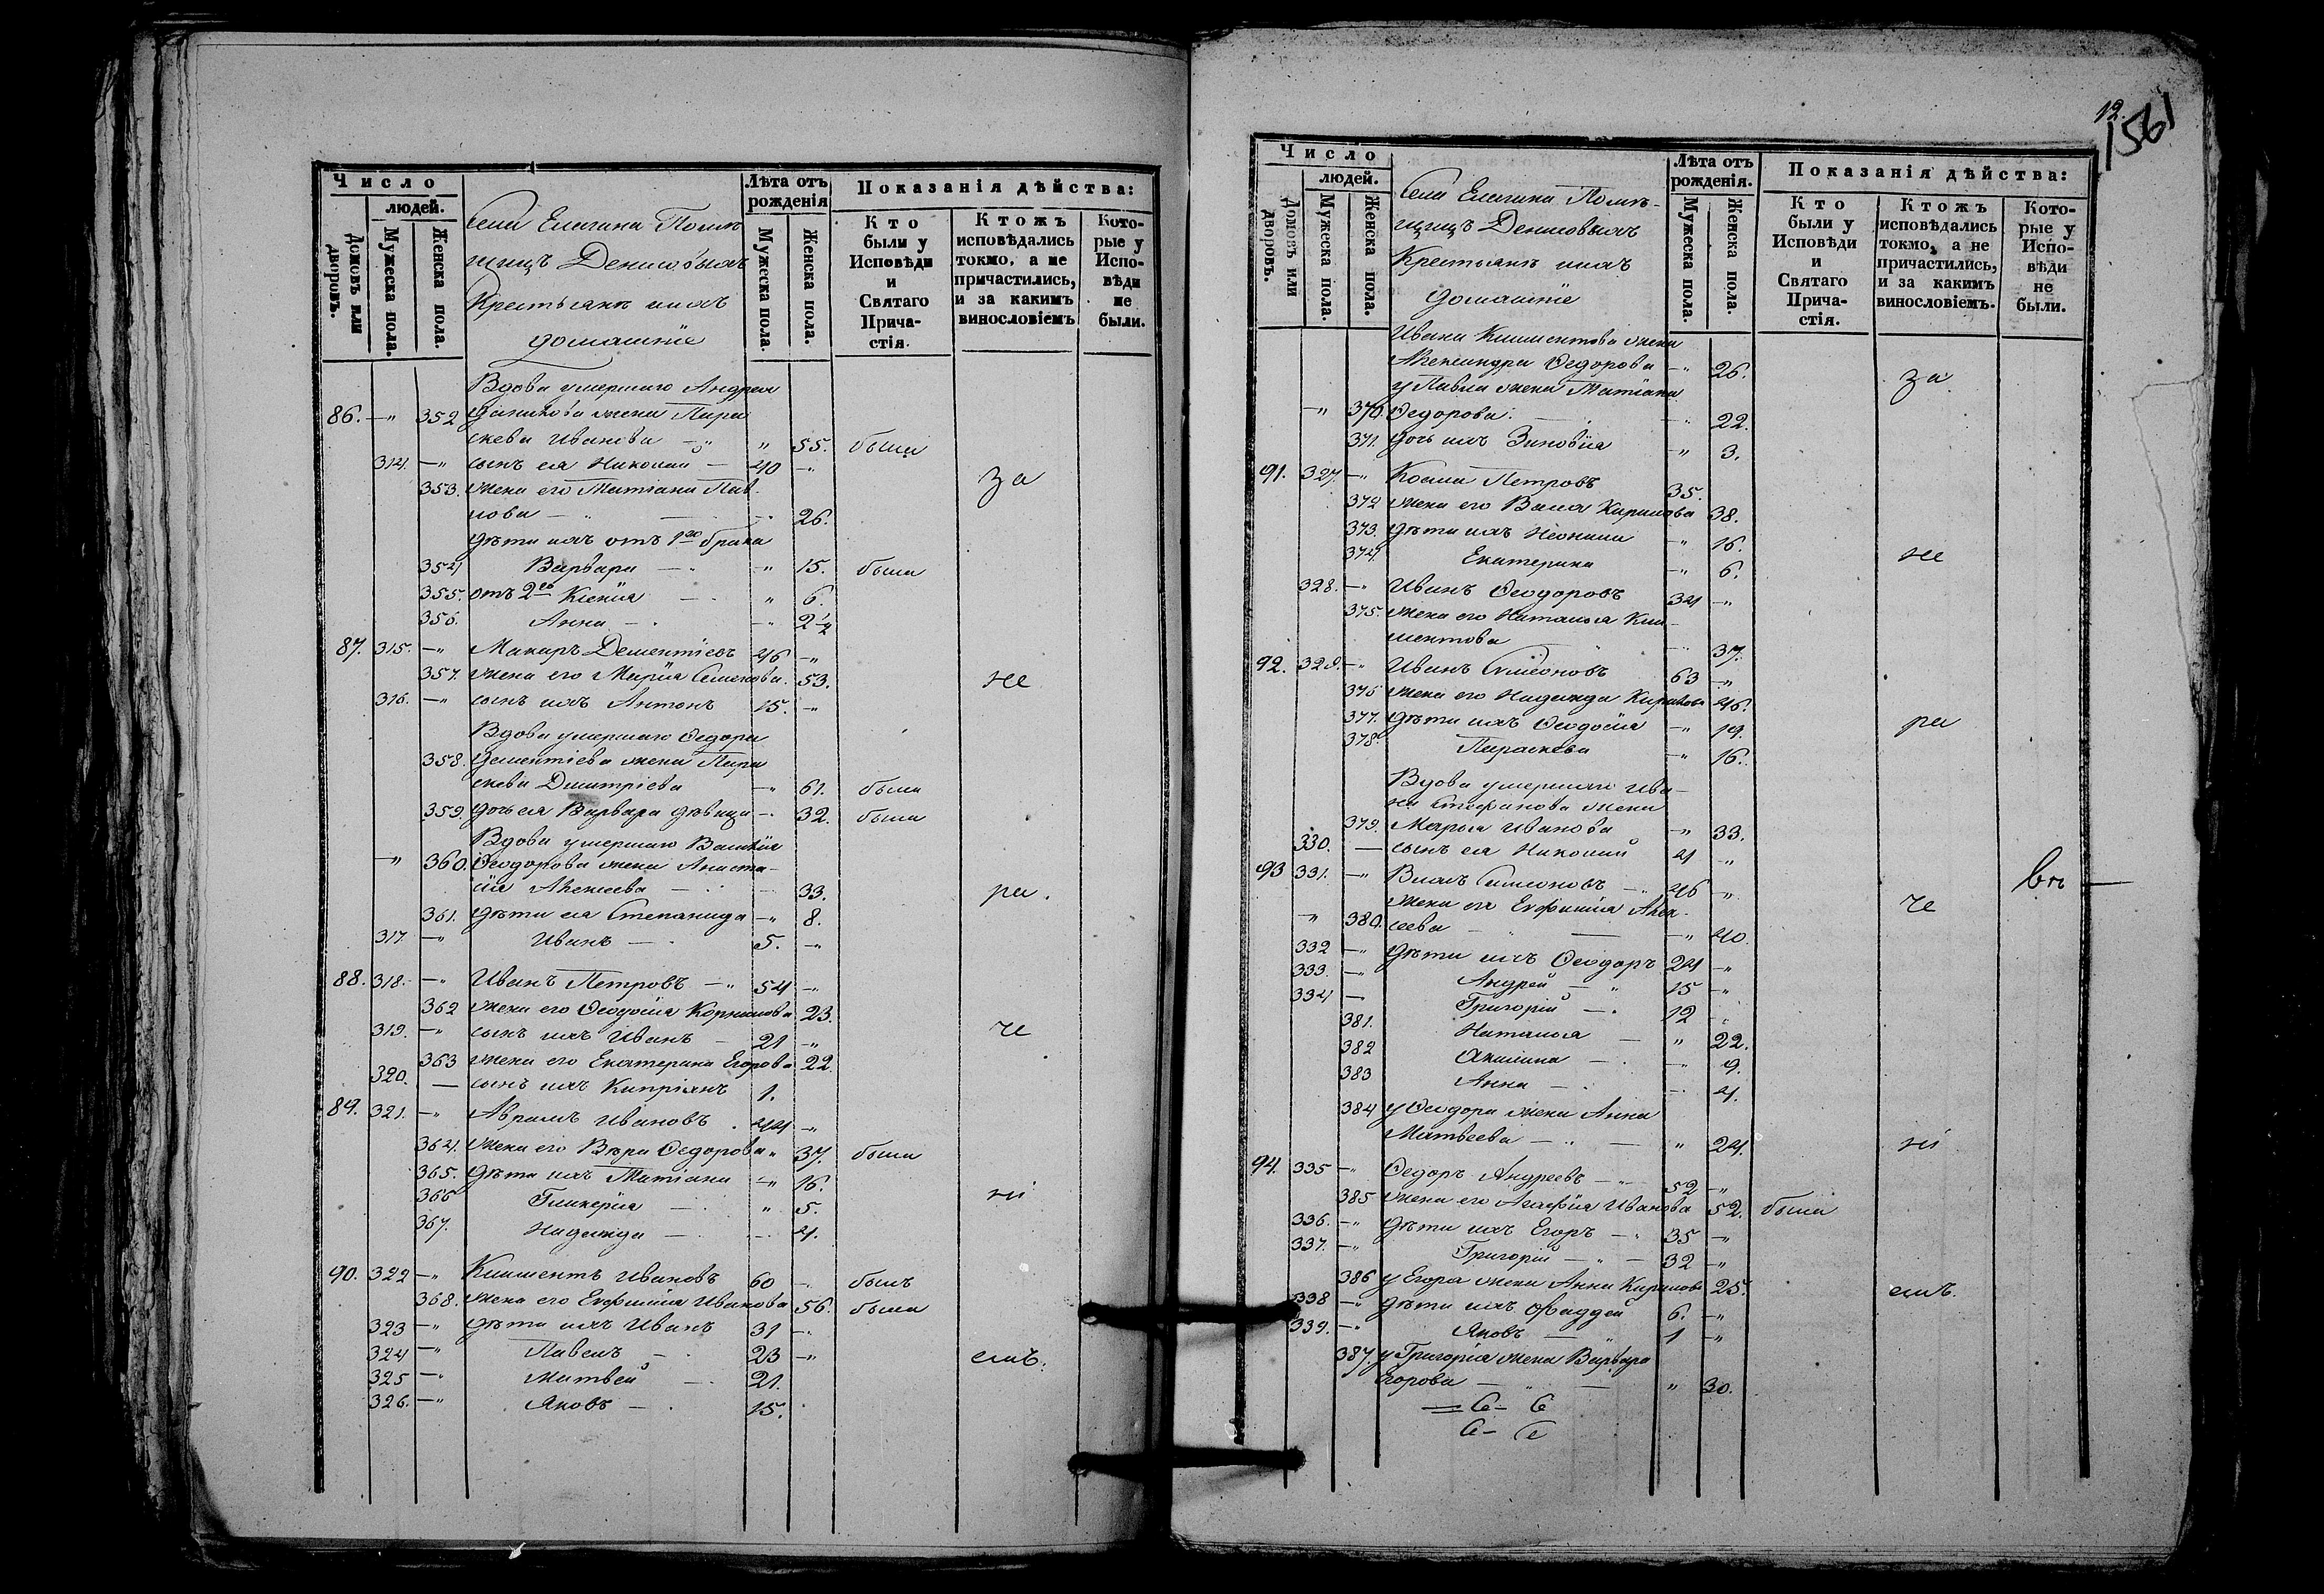 Число
людей.
Домовъ или дворовъ.
Мужеска пола.
Женска пола.
села Елагина Помѣ-
щицъ Денисовыхъ
Крестьяне ихъ
домашніе
Лѣта отъ рожденія
Мужеска пола.
Женска пола.
Показанія дѣйства:
Кто были у Исповѣди и Святаго Причастія.
Ктожъ исповѣдались токмо, а не причастились, и за какимъ винословіемъ
Которые у Исповѣди не были.
Вдова умершаго Андрея
86. —" 352 Данилова жена Пара
скева Иванова —" " 55. была
314. —" сынъ ея Николай — 40 —"
за
353. жена его Татіана Пав-
лова — " — 26.
дѣти ихъ отъ 1го брака
354 Варвара — —" 15. была
355. отъ 2го Ксенія — " 6.
356. Анна — —" 2½
87. 315. —" Макаръ Дементіевъ 46 —"
357. жена его Марія Семенова. 53. не
316. —" сынъ ихъ Антонъ 15. —"
Вдова умершаго Ѳедора
358. Дементіева жена Пара
скева Димитріева —" 61. была
359. дочь ея Варвара дѣвица — 32. была
Вдова умершаго Василія
—" 360. Ѳеодорова жена Анаста-
сія Алексеева — 33. ра
361. дѣти ея Степанида —" 8.
317. —" Иванъ — 5. —"
88. 318. —" Иванъ Петровъ —" 54 —"
362 жена его Ѳеодосія Корнилова 23.
че
319. —" сынъ ихъ Иванъ — 21 —"
363 жена его Екатерина Егорова 22.
320. — сынъ ихъ Кипріанъ 1.
89. 321. —" Аврамъ Ивановъ 44 —"
364. жена его Вѣра Ѳедорова " 37. была
365. дѣти ихъ Татіана —" 16.
ні
366 Гликерія — " 5.
367. Надежда — — 4.
90. 322 —" Климентъ Ивановъ 60 — былъ
368. жена его Евфимія Иванова 56. была
323 —" дѣти ихъ Иванъ 31 —"
324 —" Павелъ — 23 —"
емъ.
325 —" Матвей — 21.
326. —" Яковъ — 15.
12.
1561
Число
людей.
Домовъ или дворовъ.
Мужеска пола.
Женска пола.
села Елагина Помѣ-
щицъ Денисовыхъ
Крестьяне ихъ
домашніе
Лѣта отъ рожденія.
Мужеска пола.
Женска пола.
Показанія дѣйства:
Кто были у Исповѣди и Святаго Причастія.
Ктожъ исповѣдались токмо, а не причастились, и за какимъ винословіемъ.
Которые у Исповѣди не были.
Ивана Климентова жена
Александра Ѳедорова —" 26. за
у Павла жена Татіана
—" 370. Ѳедорова. — 22.
371. дочь ихъ Зиновія —" 3.
91. 327. —" Косма Петровъ 35.
372 жена его Васса Кирилова 38.
373. дѣти ихъ Неонила —" 16.
не
374. Екатерина —" 6.
328. —" Иванъ Ѳеодоровъ 34 —"
375. жена его Наталья Кли-
ментова — 37.
92. 329. —" Иванъ Симеоновъ 63 —"
376 жена его Надежда Кирилова 46.
377. дѣти ихъ Ѳеодосія —" 19. ра
378. Параскева —" 16.
Вдова умершаго Ива-
на Стефанова жена
379. Марья Иванова —" 33.
330. — сынъ ея Николай 4 —"
93 331. —" Власъ Симоновъ —" 46 —"
въ
жена его Евфимія Алек-
че
—" 380. сеева — —" 40.
332 —" дѣти ихъ Ѳеодоръ 24 —"
333. —" Андрей —" 15 —"
334 — Григорій — 12 —
381. Наталья — " 22.
382 Акилина — —" 9.
383 Анна — — 4.
384 у Ѳеодора жена Анна
Матвеева — " — " 24. ні
94. 335 —" Ѳедоръ Андреевъ —" 52 —"
385 жена его Агафія Иванова 52. была
336. —" дѣти ихъ Егоръ — 35 —"
337. —" Григорій —" — 32 —"
386 у Егора жена Анна Кирилова 25.
емъ.
338 —" дѣти ихъ Ѳаддей 6. —"
339. —" Яковъ —" 1 —"
387. у Григорія жена Варвара
Егорова — " — " 30.